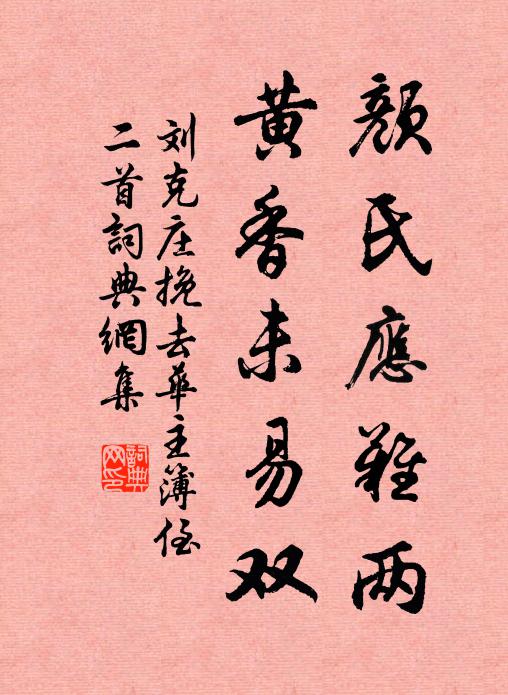 顔氏應難两
黄香未易双
刘克庄挽去華主簿侄
二首詞典網集
詞典网印